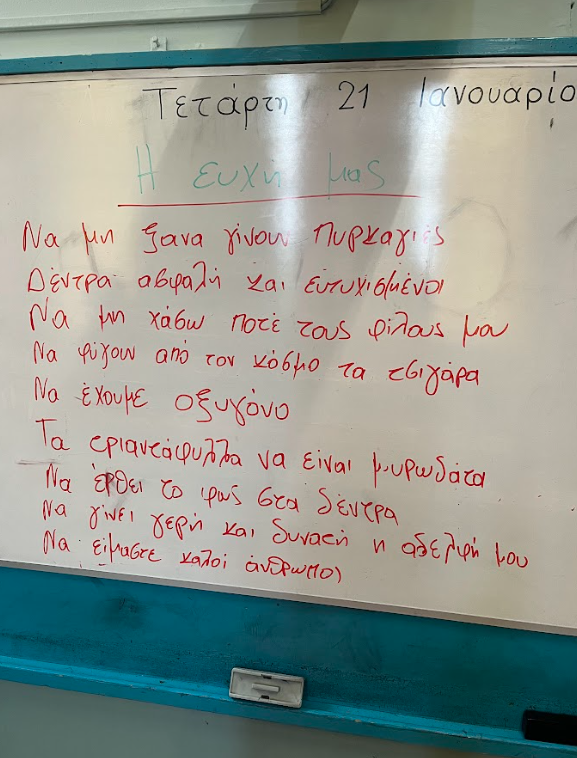 Τετάρτη 21 Ιανουαρίο
Η ευχή μας
Να μη ξανα γίνουν πυρκαγιές
Δέντρα ασφαλή και ευτυχισμένοι
Να μη χάσω ποτέ τους φίλους μου
Να φύγουν από τον κόσμο τα τσιγάρα
Να έχουμε οξυγόνο
Τα τριαντάφυλλα να είναι μυρωδάτα
Να έρθει το φως στα δέντρα
Να γίνει γερή και δυνατή η αδελφή μου
Να είμαστε καλοί άνθρωποι